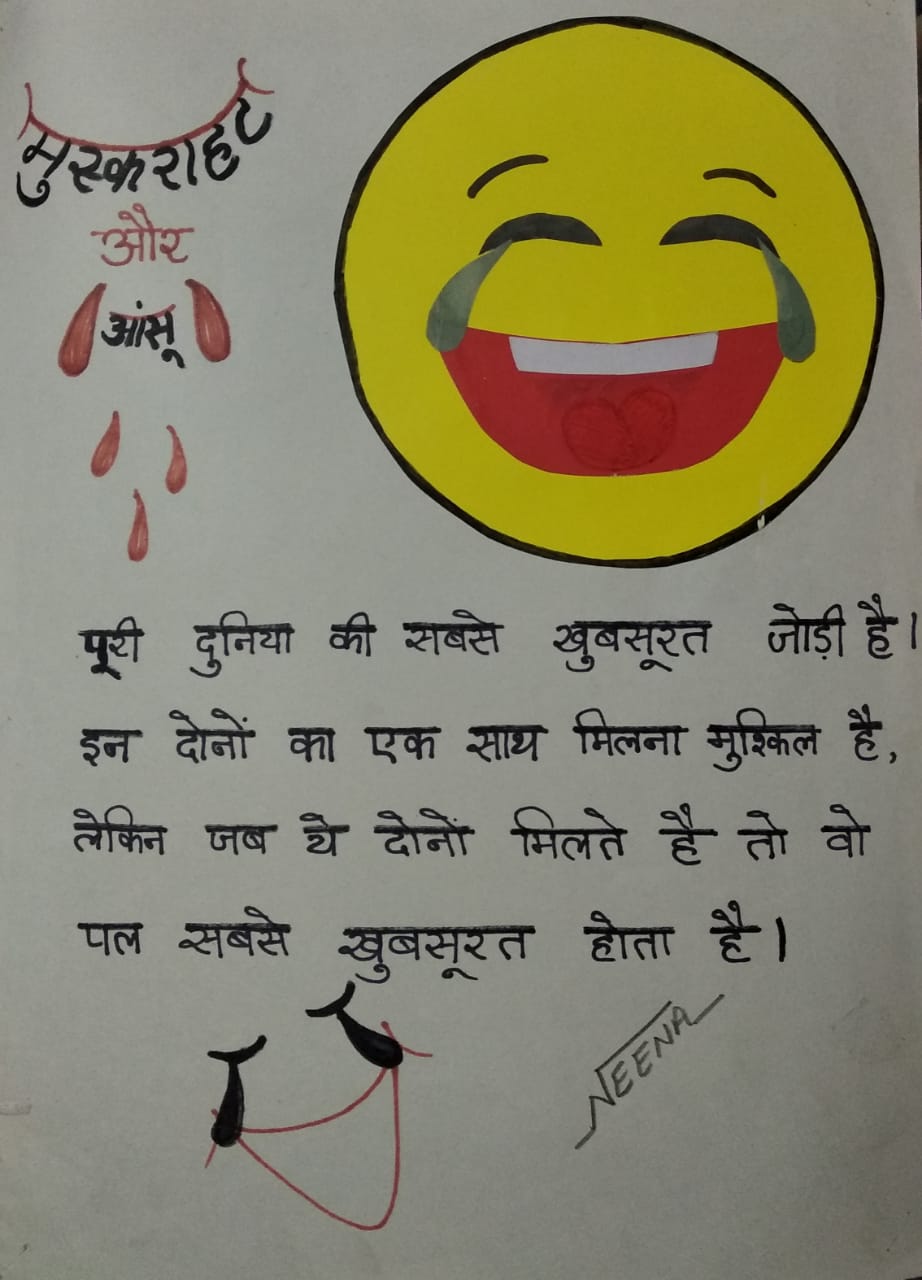 मुस्कराहट
और
आंसू
पूरी दुनिया की सबसे खुबसूरत जोड़ी है।
इन दोनों का एक साथ मिलना मुश्किल है,
लेकिन जब ये दोनों मिलते है तो वो
पल सबसे खुबसूरत होता है।
NEENA